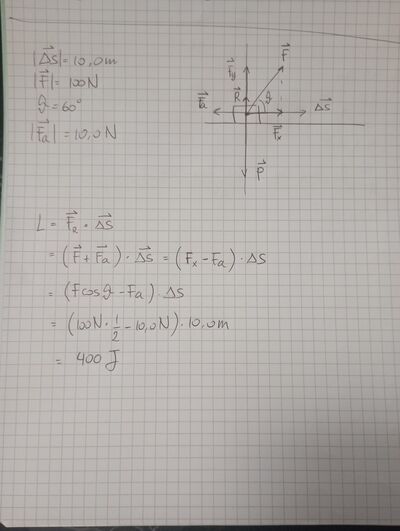 |Δs⃗| = 10,0m
|F⃗| = 100N
ϑ = 60°
|F⃗a| = 10,0N
F⃗y
F⃗
R⃗
ϑ
F⃗a
Δs⃗
F⃗x
P⃗
L = F⃗R · Δs⃗
= (F⃗ + F⃗a) · Δs⃗ = (Fx − Fa) · Δs
= (F cosϑ − Fa) · Δs
= (100N · 1/2 − 10,0N) · 10,0m
= 400 J